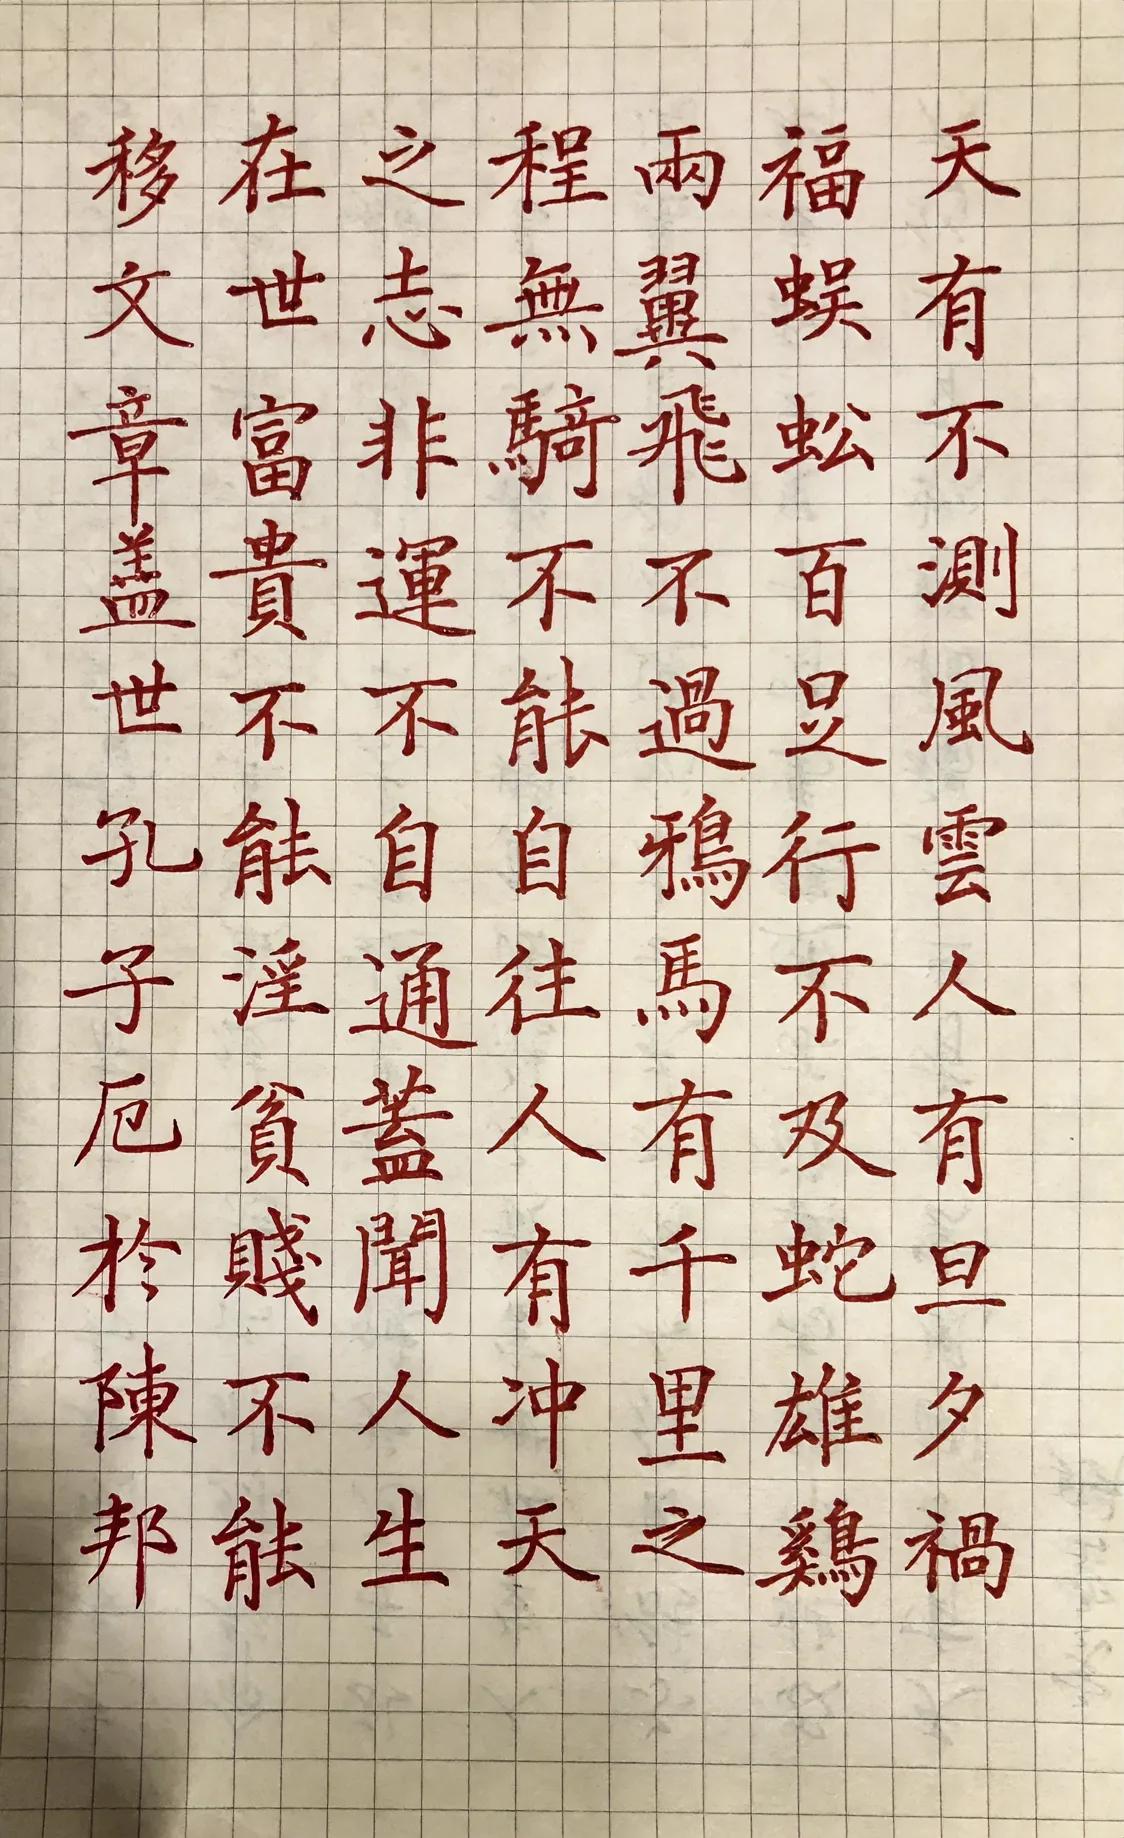 天有不測風雲人有旦夕禍
福蜈蚣百足行不及蛇雄鷄
兩翼飛不過鴉馬有千里之
程無騎不能自往人有冲天
之志非運不自通蓋聞人生
在世富貴不能淫貧賤不能
移文章盖世孔子厄於陳邦